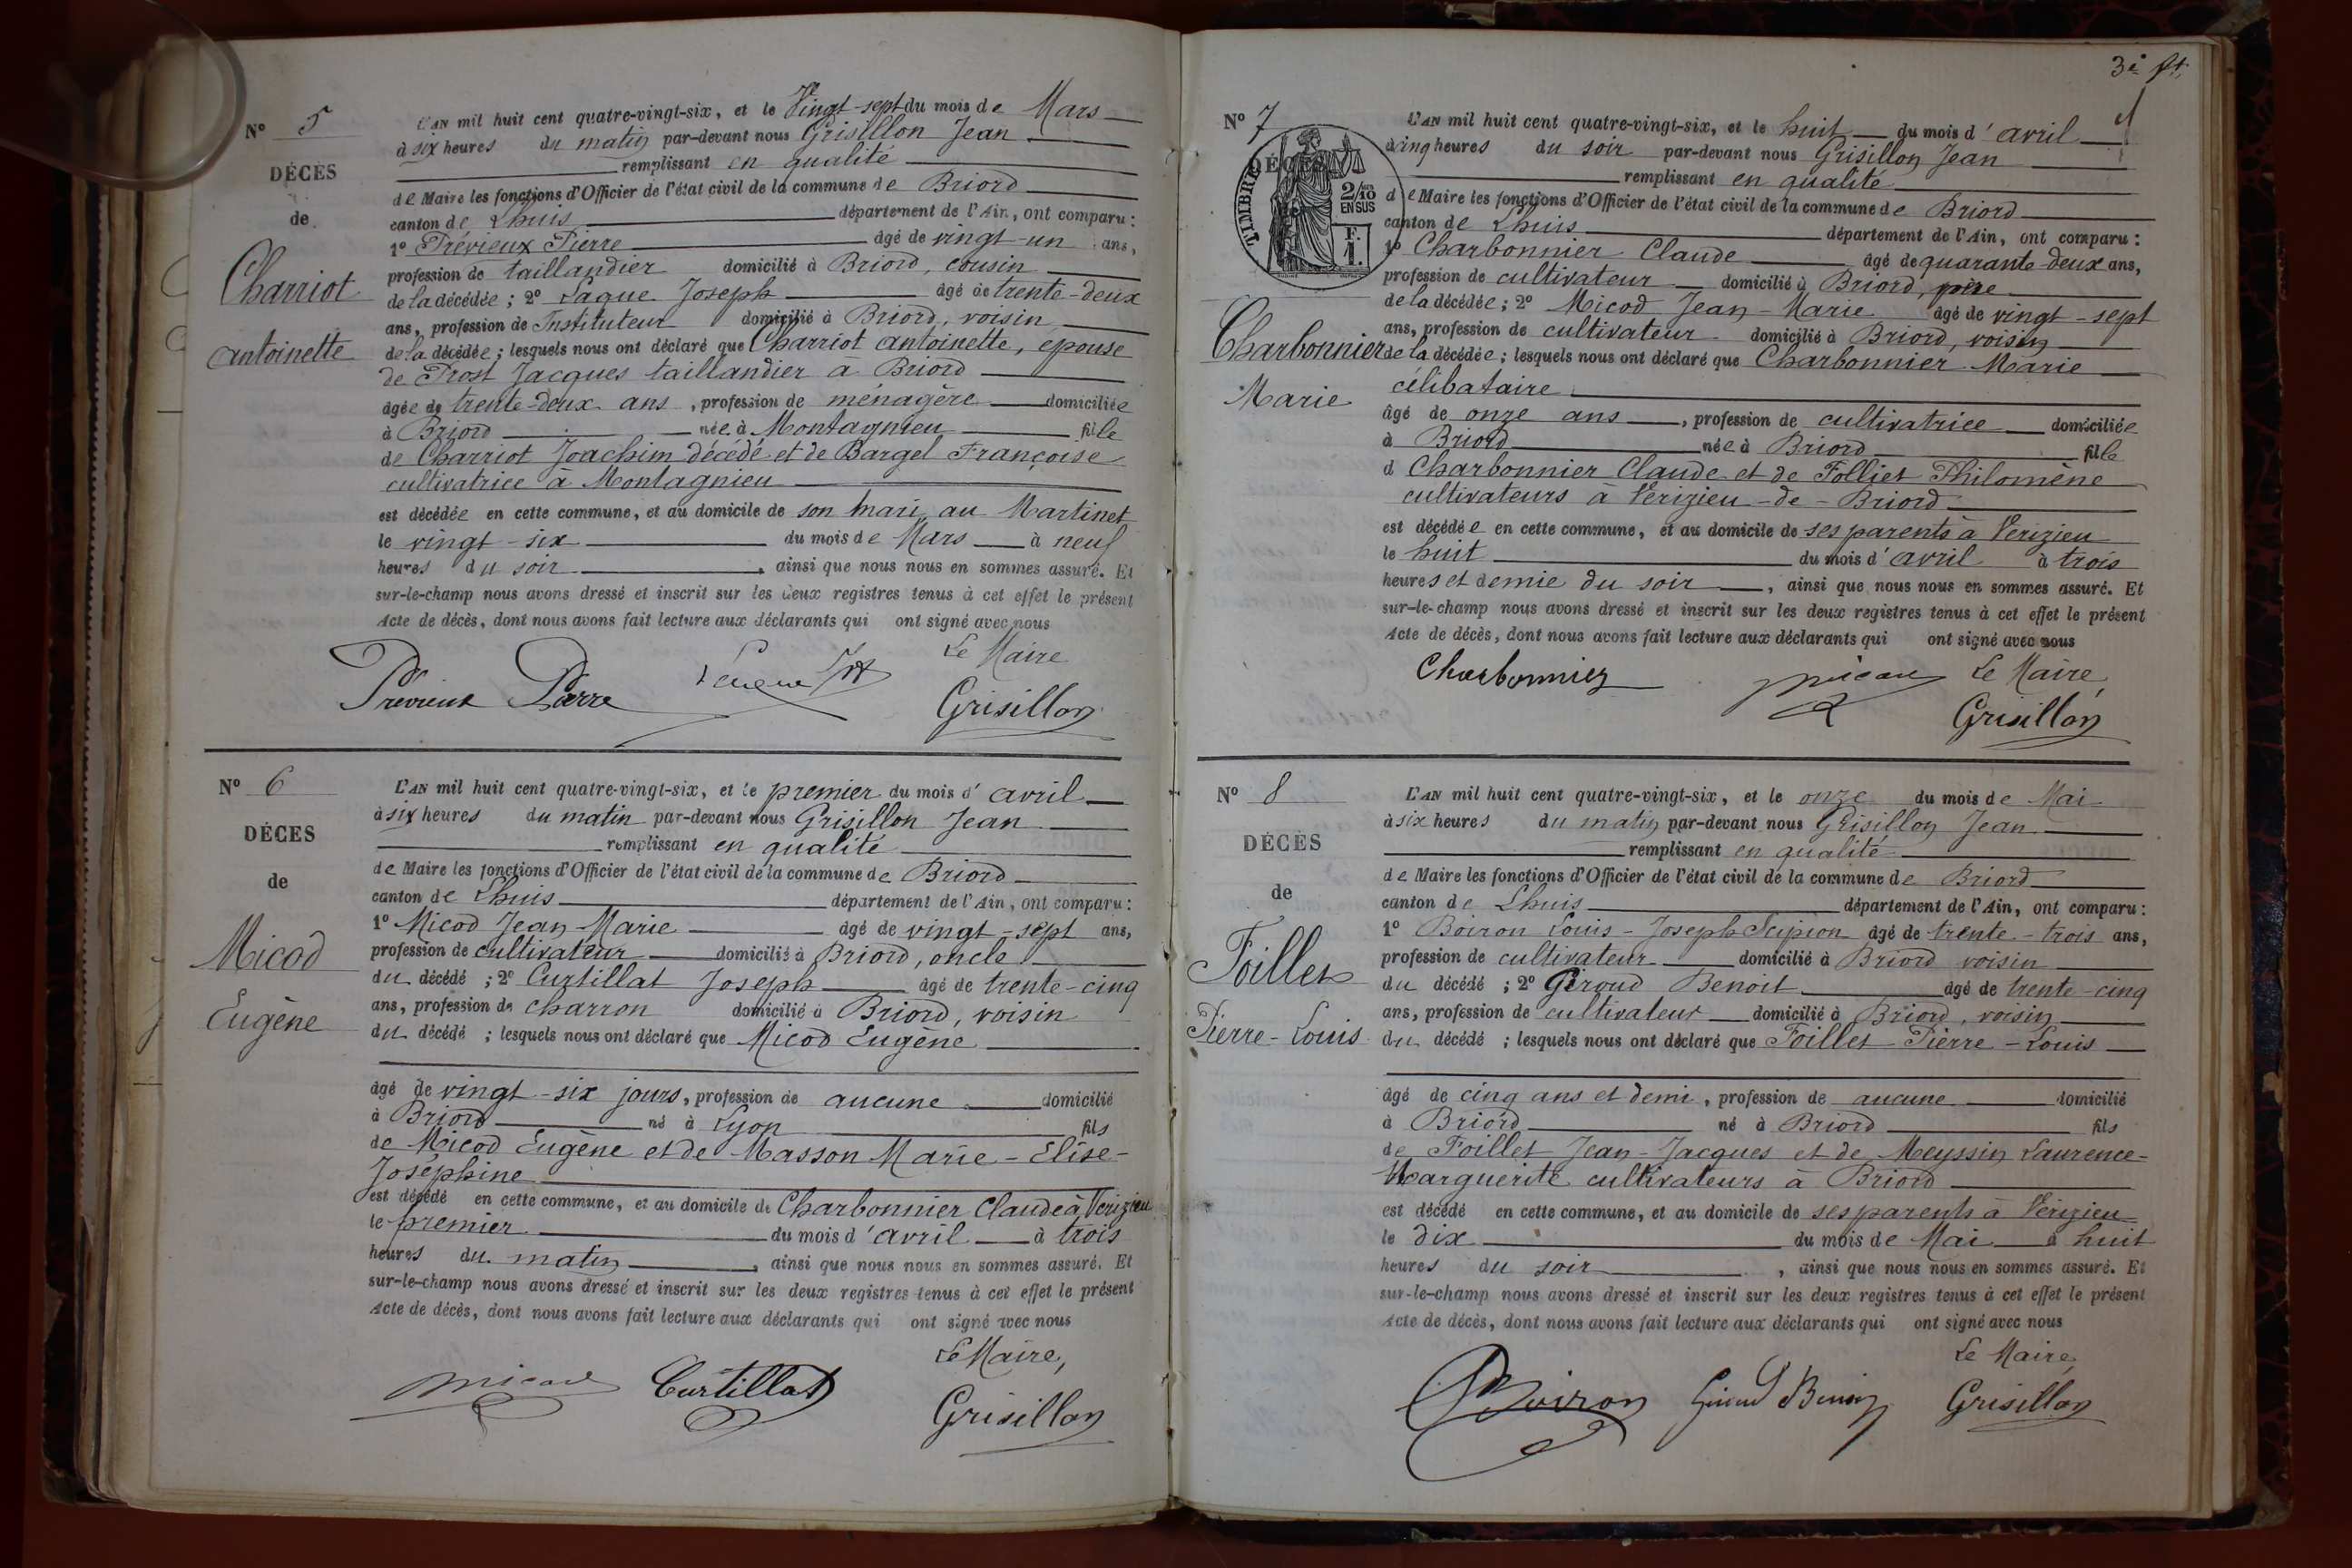 N° 5
DÉCÈS
de
Charriot
Antoinette
L'AN mil huit cent quatre-vingt-six, et le Vingt-sept du mois de Mars
à six heures du matin par-devant nous Grisillon Jean
remplissant en qualité
de Maire les fonctions d'Officier de l'état civil de la commune de Briord
canton de Lhuis département de l'Ain, ont comparu :
1° Prévieux Pierre âgé de vingt-un ans,
profession de taillandier domicilié à Briord, cousin
de la décédée ; 2° Laque Joseph âgé de trente-deux
ans, profession de Instituteur domicilié à Briord, voisin
de la décédée ; lesquels nous ont déclaré que Charriot Antoinette, epouse
de Prost Jacques taillandier à Briord
âgée de trente-deux ans, profession de ménagère domiciliée
à Briord née à Montagnieu fille
de Charriot Joachim décédé et de Bargel Françoise
cultivatrice à Montagnieu
est décédée en cette commune, et au domicile de son mari, au Martinet
le vingt-six du mois de Mars à neuf
heures du soir, ainsi que nous nous en sommes assuré. Et
sur-le-champ nous avons dressé et inscrit sur les deux registres tenus à cet effet le présent
Acte de décès, dont nous avons fait lecture aux déclarants qui ont signé avec nous
Le Maire
Prévieux Pierre
Grisillon
N° 6
DÉCÈS
de
Micod
Eugène
L'AN mil huit cent quatre-vingt-six, et le premier du mois d'avril
à six heures du matin par-devant nous Grisillon Jean
remplissant en qualité
de Maire les fonctions d'Officier de l'état civil de la commune de Briord
canton de Lhuis département de l'Ain, ont comparu :
1° Micod Jean Marie âgé de vingt-sept ans,
profession de cultivateur domicilié à Briord, oncle
du décédé ; 2° Curtillat Joseph âgé de trente-cinq
ans, profession de charron domicilié à Briord, voisin
du décédé ; lesquels nous ont déclaré que Micod Eugène
âgé de vingt-six jours, profession de aucune domicilié
à Briord né à Lyon fils
de Micod Eugène et de Masson Marie-Elise-
Joséphine
est décédé en cette commune, et au domicile de Charbonnier Claude à Verizieu
le premier du mois d'avril à trois
heures du matin, ainsi que nous nous en sommes assuré. Et
sur-le-champ nous avons dressé et inscrit sur les deux registres tenus à cet effet le présent
Acte de décès, dont nous avons fait lecture aux déclarants qui ont signé avec nous
Le Maire,
Micod Curtillat
Grisillon
3e ft.
N° 7
DÉCÈS
TIMBRE
2/10
EN SUS
F.
1.
Charbonnier
Marie
L'AN mil huit cent quatre-vingt-six, et le huit du mois d'avril
à cinq heures du soir par-devant nous Grisillon Jean
remplissant en qualité
de Maire les fonctions d'Officier de l'état civil de la commune de Briord
canton de Lhuis département de l'Ain, ont comparu :
1° Charbonnier Claude âgé de quarante-deux ans,
profession de cultivateur domicilié à Briord, père
de la décédée ; 2° Micod Jean-Marie âgé de vingt-sept
ans, profession de cultivateur domicilié à Briord, voisin
de la décédée ; lesquels nous ont déclaré que Charbonnier Marie
célibataire
âgé de onze ans, profession de cultivatrice domiciliée
à Briord née à Briord fille
d Charbonnier Claude et de Folliet Philomène
cultivateurs à Verizieu-de-Briord
est décédée en cette commune, et au domicile de ses parents à Verizieu
le huit du mois d'avril à trois
heures et demie du soir, ainsi que nous nous en sommes assuré. Et
sur-le-champ nous avons dressé et inscrit sur les deux registres tenus à cet effet le présent
Acte de décès, dont nous avons fait lecture aux déclarants qui ont signé avec nous
Charbonnier Micod Le Maire,
Grisillon
N° 8
DÉCÈS
de
Foillet
Pierre-Louis
L'AN mil huit cent quatre-vingt-six, et le onze du mois de Mai
à six heures du matin par-devant nous Grisillon Jean
remplissant en qualité
de Maire les fonctions d'Officier de l'état civil de la commune de Briord
canton de Lhuis département de l'Ain, ont comparu :
1° Boiron Louis-Joseph Scipion âgé de trente-trois ans,
profession de cultivateur domicilié à Briord voisin
du décédé ; 2° Giroud Benoit âgé de trente-cinq
ans, profession de cultivateur domicilié à Briord, voisin
du décédé ; lesquels nous ont déclaré que Foillet Pierre-Louis
âgé de cinq ans et demi, profession de aucune domicilié
à Briord né à Briord fils
de Foillet Jean-Jacques et de Meyssin Laurence-
Marguerite cultivateurs à Briord
est décédé en cette commune, et au domicile de ses parents à Verizieu
le dix du mois de Mai à huit
heures du soir, ainsi que nous nous en sommes assuré. Et
sur-le-champ nous avons dressé et inscrit sur les deux registres tenus à cet effet le présent
Acte de décès, dont nous avons fait lecture aux déclarants qui ont signé avec nous
Le Maire,
Boiron Giroud Benoit Grisillon